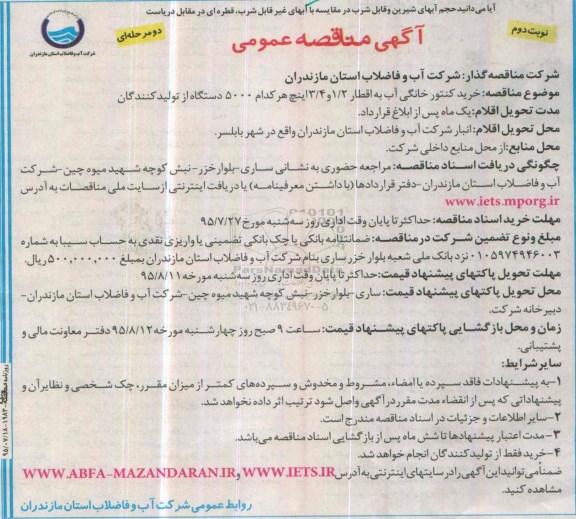 آیا می‌دانید حجم آبهای شیرین وقابل شرب در مقایسه با آبهای غیر قابل شرب، قطره‌ای در مقابل دریاست
نوبت دوم
آگهی مناقصه عمومی
دو مرحله‌ای
شرکت آب و فاضلاب استان مازندران
شرکت مناقصه گذار: شرکت آب و فاضلاب استان مازندران
موضوع مناقصه: خرید کنتور خانگی آب به اقطار ۱/۲ و ۳/۴ اینچ هر کدام ۵۰۰۰ دستگاه از تولیدکنندگان
مدت تحویل اقلام: یک ماه پس از ابلاغ قرارداد.
محل تحویل اقلام: انبار شرکت آب و فاضلاب استان مازندران واقع در شهر بابلسر.
محل منابع: از محل منابع داخلی شرکت.
چگونگی دریافت اسناد مناقصه: مراجعه حضوری به نشانی ساری-بلوار خزر-نبش کوچه شهید میوه چین-شرکت
آب و فاضلاب استان مازندران-دفتر قراردادها (با داشتن معرفینامه) یا دریافت اینترنتی از سایت ملی مناقصات به آدرس
www.iets.mporg.ir
مهلت خرید اسناد مناقصه: حداکثر تا پایان وقت اداری روز سه‌شنبه مورخ ۹۵/۷/۲۷
مبلغ ونوع تضمین شرکت در مناقصه: ضمانتنامه بانکی یا چک بانکی تضمینی یا واریزی نقدی به حساب سیبا به شماره
۰۱۰۵۹۷۴۹۴۶۰۰۳ نزد بانک ملی شعبه بلوار خزر ساری بنام شرکت آب و فاضلاب استان مازندران بمبلغ ۵۰۰,۰۰۰,۰۰۰ ریال.
مهلت تحویل پاکتهای پیشنهاد قیمت: حداکثر تا پایان وقت اداری روز سه‌شنبه مورخه ۹۵/۸/۱۱
محل تحویل پاکتهای پیشنهاد قیمت: ساری-بلوار خزر-نبش کوچه شهید میوه چین-شرکت آب و فاضلاب استان مازندران-
دبیرخانه شرکت.
زمان و محل بازگشایی پاکتهای پیشنهاد قیمت: ساعت ۹ صبح روز چهارشنبه مورخه ۹۵/۸/۱۲ دفتر معاونت مالی و
پشتیبانی.
سایر شرایط:
۱-به پیشنهادات فاقد سپرده یا امضاء، مشروط و مخدوش و سپرده‌های کمتر از میزان مقرر، چک شخصی و نظایر آن و
پیشنهاداتی که پس از انقضاء مدت مقرر در آگهی واصل شود ترتیب اثر داده نخواهد شد.
۲-سایر اطلاعات و جزئیات در اسناد مناقصه مندرج است.
۳-مدت اعتبار پیشنهادها تا شش ماه پس از بازگشایی اسناد مناقصه می‌باشد.
۴-خرید فقط از تولیدکنندگان انجام خواهد شد.
ضمناً می‌توانید این آگهی را در سایتهای اینترنتی به آدرس WWW.IETS.IR و WWW.ABFA-MAZANDARAN.IR
مشاهده کنید.
روابط عمومی شرکت آب و فاضلاب استان مازندران
ParsNamadData
۰۲۱-۸۸۳۴۹۶۷۰-۵